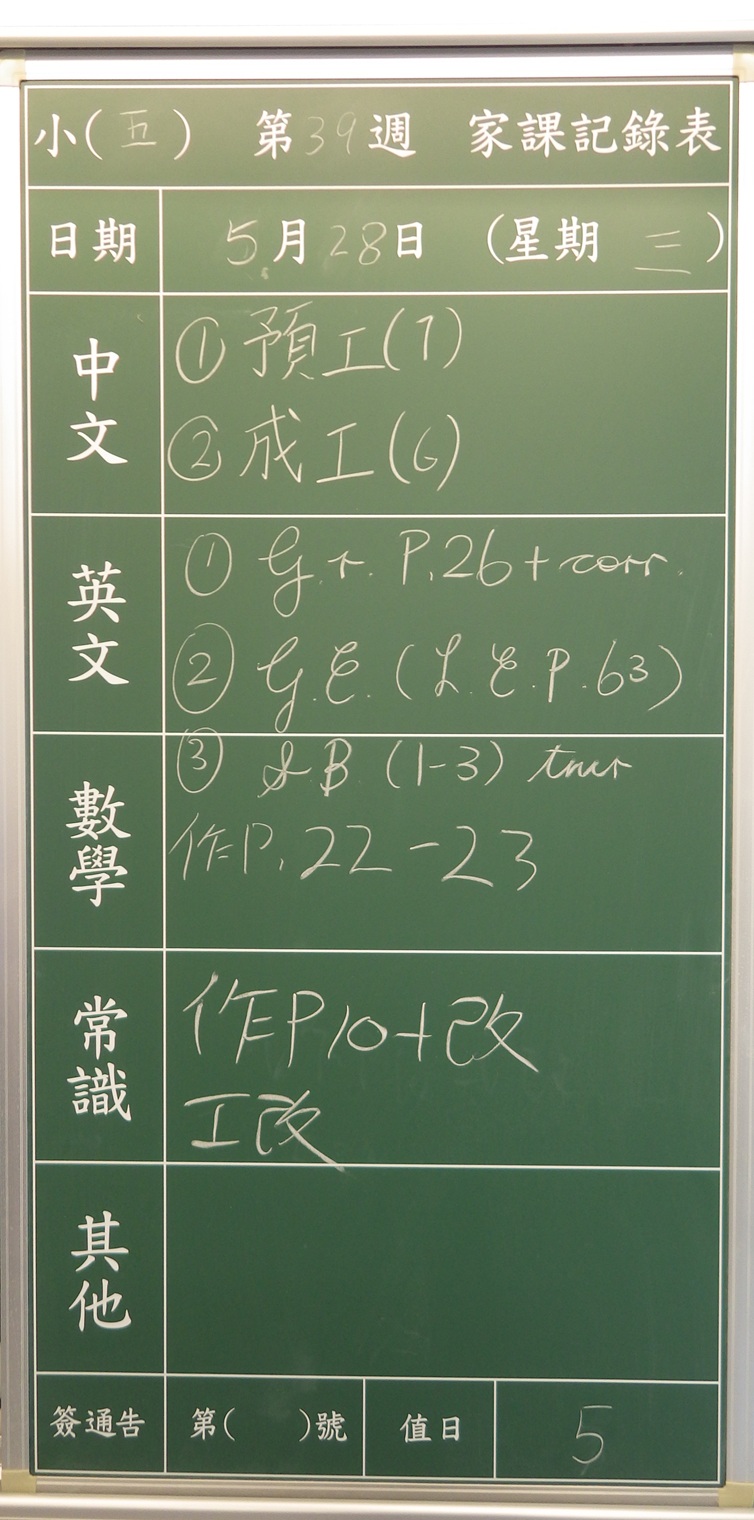 小(五) 第39週 家課記錄表
日期 5月28日 (星期 三)
中文
① 預工(7)
② 成工(6)
英文
① Gr. P.26 + corr.
② G.E. (L.E.P.63)
③ S.B (1-3)
數學
作P.22-23
常識
作P10+改
工改
其他
簽通告 第( )號 值日 5